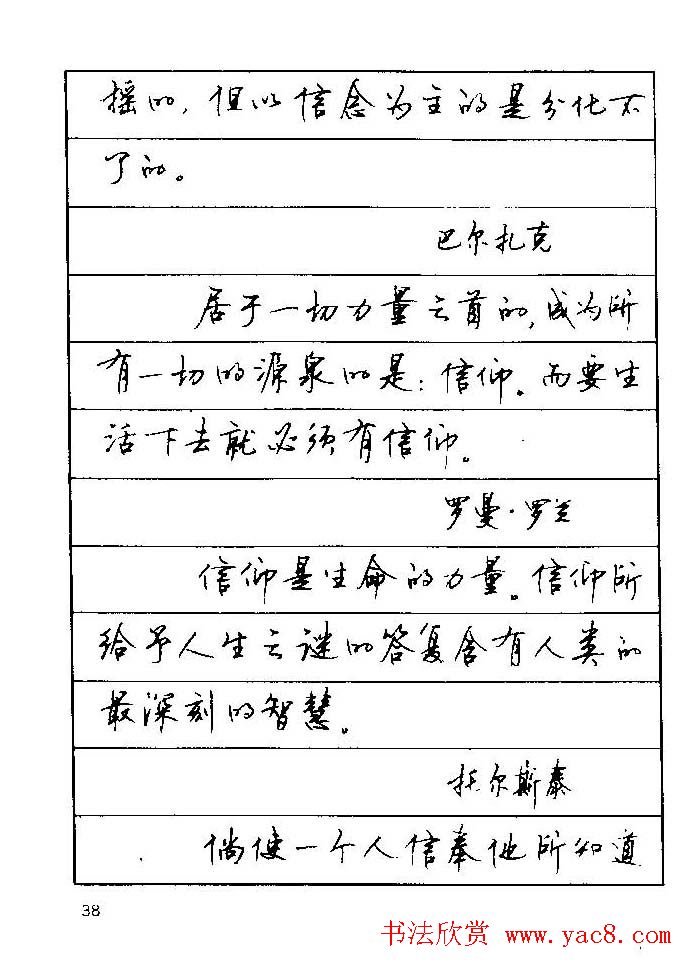 摇的，但以信念为主的是分化不
了的。
巴尔扎克
居于一切力量之首的，成为所
有一切的源泉的是：信仰。而要生
活下去就必须有信仰。
罗曼·罗兰
信仰是生命的力量。信仰所
给予人生之谜的答复含有人类的
最深刻的智慧。
托尔斯泰
倘使一个人信奉他所知道
38
书法欣赏 www.yac8.com